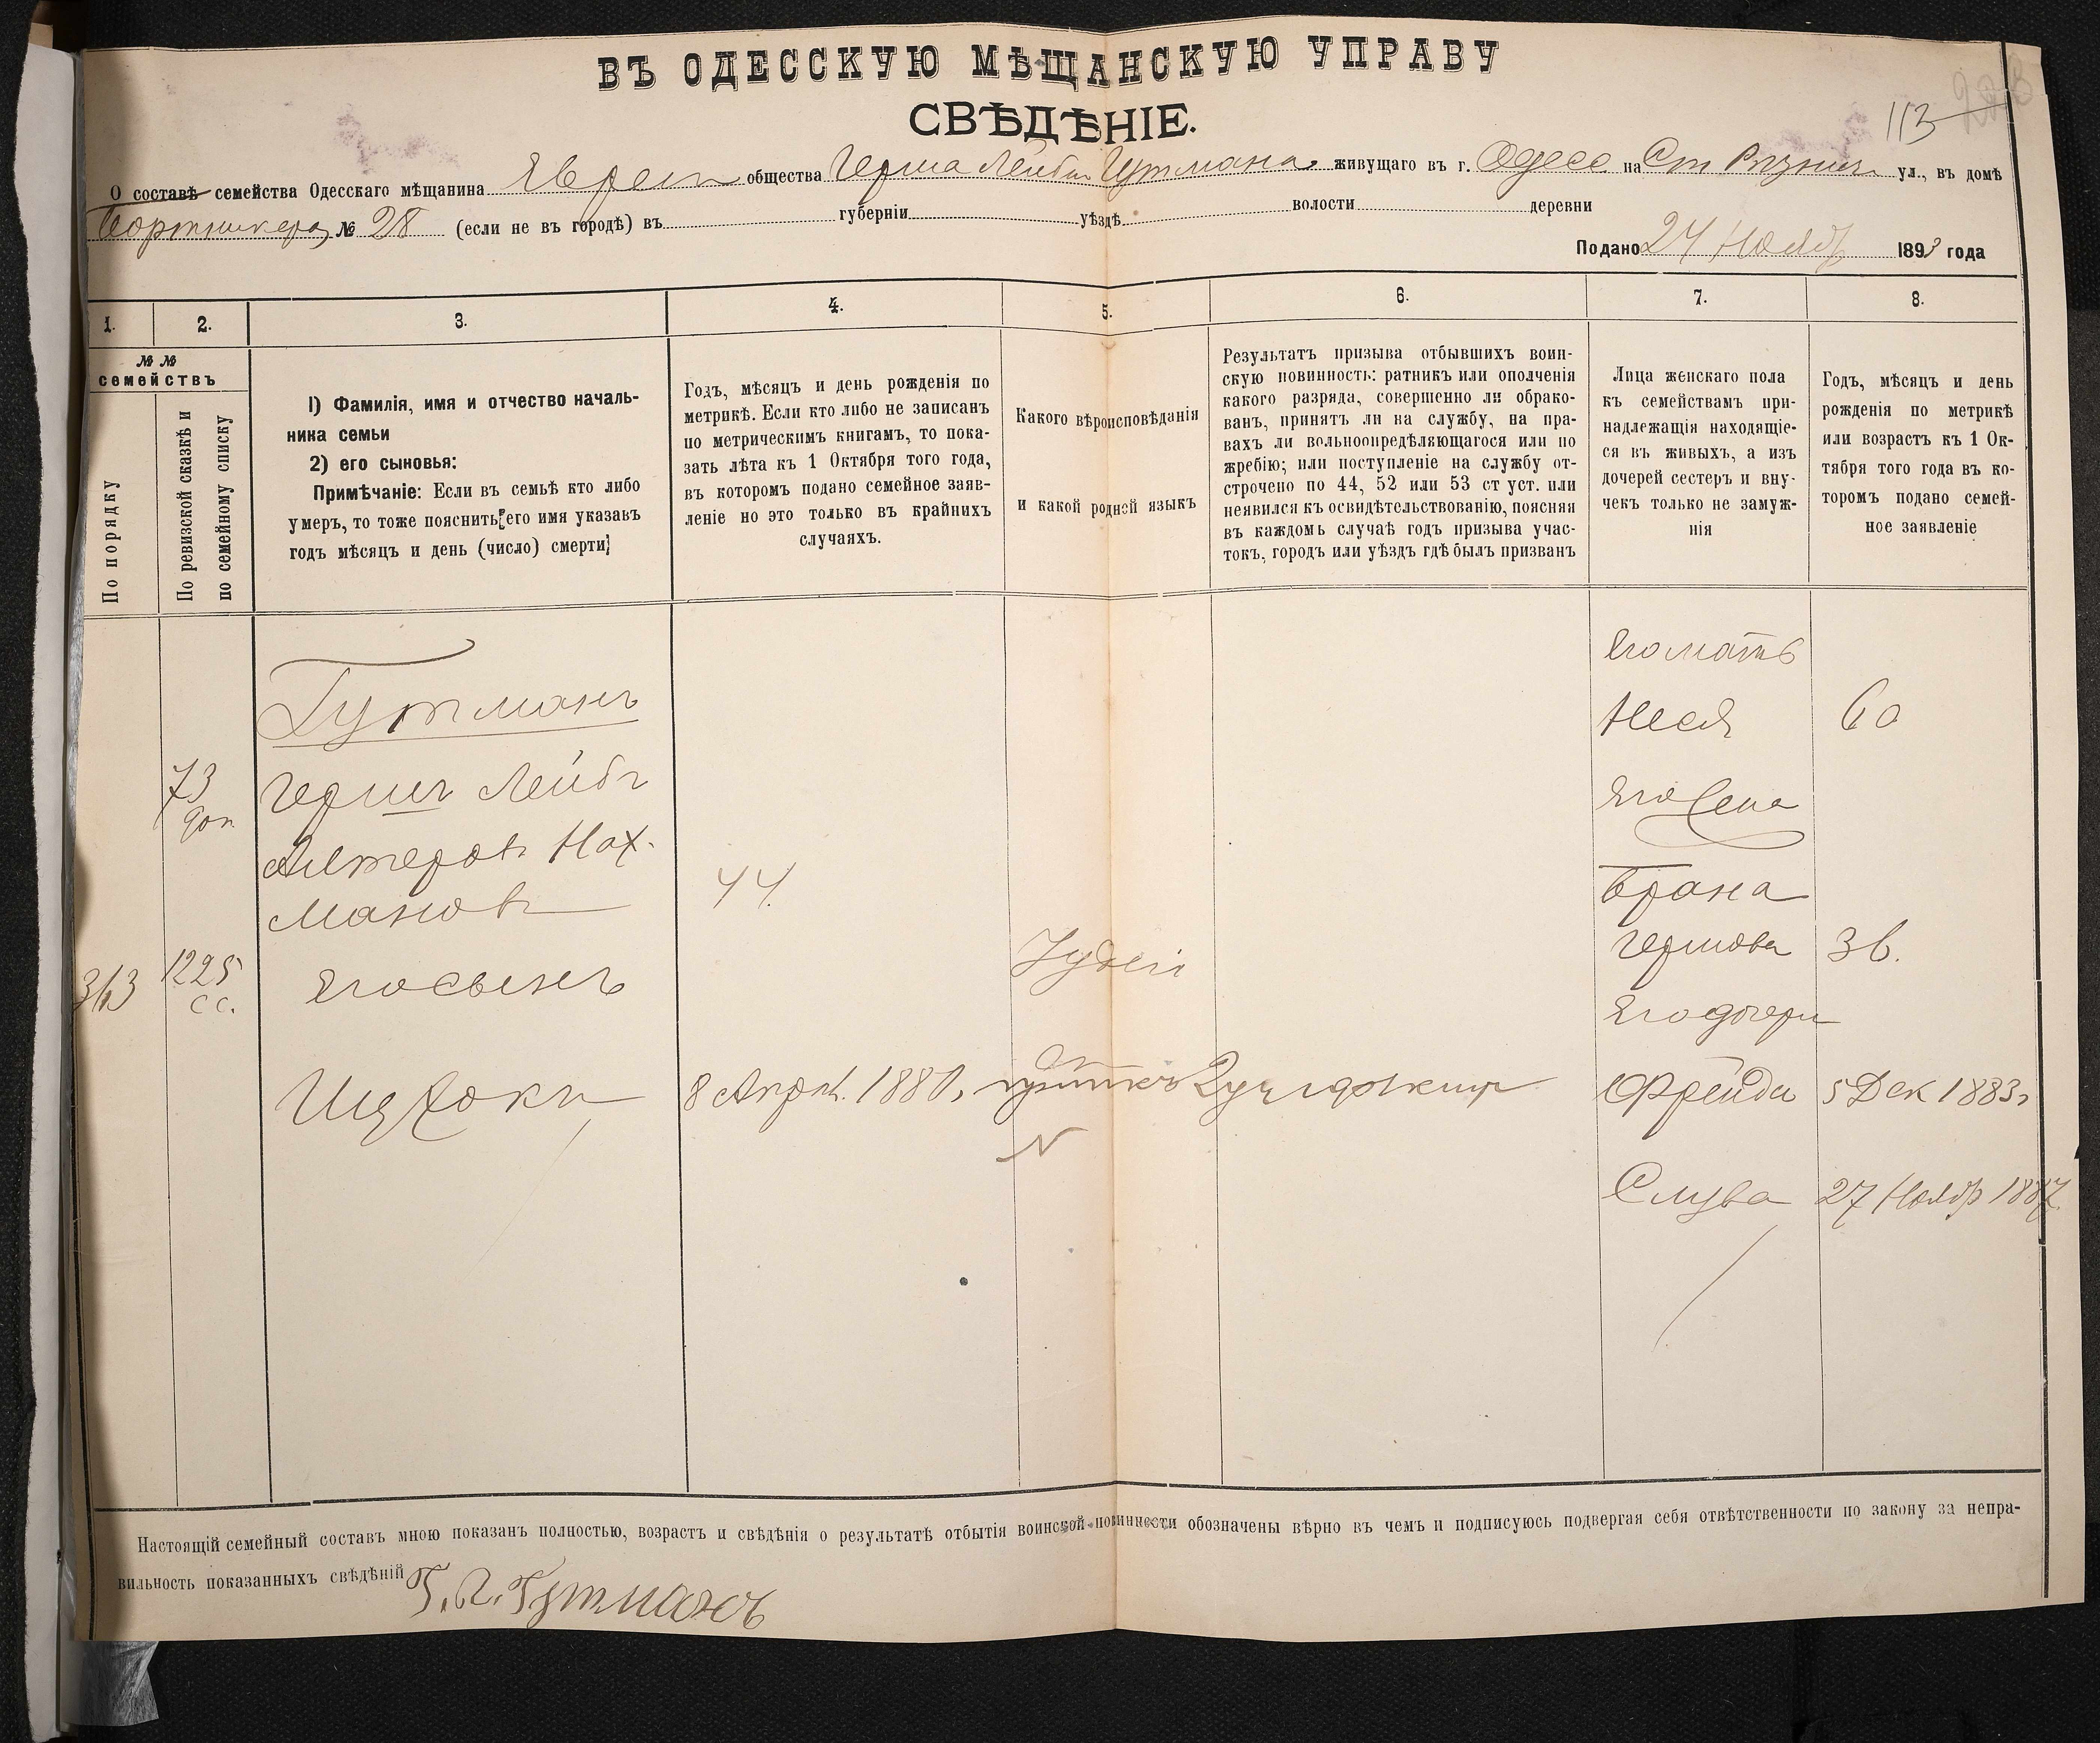 ВЪ ОДЕССКУЮ МѢЩАНСКУЮ УПРАВУ
СВѢДѢНІЕ.
113
О составѣ семейства Одесскаго мѣщанина Еврей общества Герша Лейбы Гутмана живущаго въ г. Одесс на Ст Рѣзнич ул., въ домѣ
№ 28 (если не въ городѣ) въ губерніи уѣздѣ волости деревни
Подано 24 Ноябр 1893 года
1. 2. 3. 4. 5. 6. 7. 8.
№ №
семействъ
По порядку
По ревизской сказкѣ и
по семейному списку
1) Фамилія, имя и отчество началь-
ника семьи
2) его сыновья:
Примѣчаніе: Если въ семьѣ кто либо
умеръ, то тоже пояснить его имя указавъ
годъ мѣсяцъ и день (число) смерти
Годъ, мѣсяцъ и день рожденія по
метрикѣ. Если кто либо не записанъ
по метрическимъ книгамъ, то пока-
зать лѣта къ 1 Октября того года,
въ которомъ подано семейное заяв-
леніе но это только въ крайнихъ
случаяхъ.
Какого вѣроисповѣданія
и какой родной языкъ
Результатъ призыва отбывшихъ воин-
скую повинность: ратникъ или ополченія
какого разряда, совершенно ли обрако-
ванъ, принятъ ли на службу, на пра-
вахъ ли вольноопредѣляющагося или по
жребію; или поступленіе на службу от-
строчено по 44, 52 или 53 ст уст. или
неявился къ освидѣтельствованію, поясняя
въ каждомъ случаѣ годъ призыва учас-
токъ, городъ или уѣздъ гдѣ былъ призванъ
Лица женскаго пола
къ семействамъ при-
надлежащія находящіе-
ся въ живыхъ, а изъ
дочерей сестеръ и вну-
чекъ только не замуж-
нія
Годъ, мѣсяцъ и день
рожденія по метрикѣ
или возрастъ къ 1 Ок-
тября того года въ ко-
торомъ подано семей-
ное заявленіе
Его мать
Гутманъ
Неся 60
73 доп
Гершъ Лейбъ
Его жена
Алтеровъ Нах-
мановъ 44.
Брана
Гершова 36.
313 1225 с с.
Его сынъ
Іудей
Его дочери
Ицхокъ 8 Апрѣл. 1880,
Фрейда 5 Дек 1883г
Слува 27 Ноябр 1887.
Настоящій семейный составъ мною показанъ полностью, возрастъ и свѣдѣнія о результатѣ отбытія воинской повинности обозначены вѣрно въ чемъ и подписуюсь подвергая себя отвѣтственности по закону за непра-
вильность показанныхъ свѣдѣній Г. Л. Гутманъ